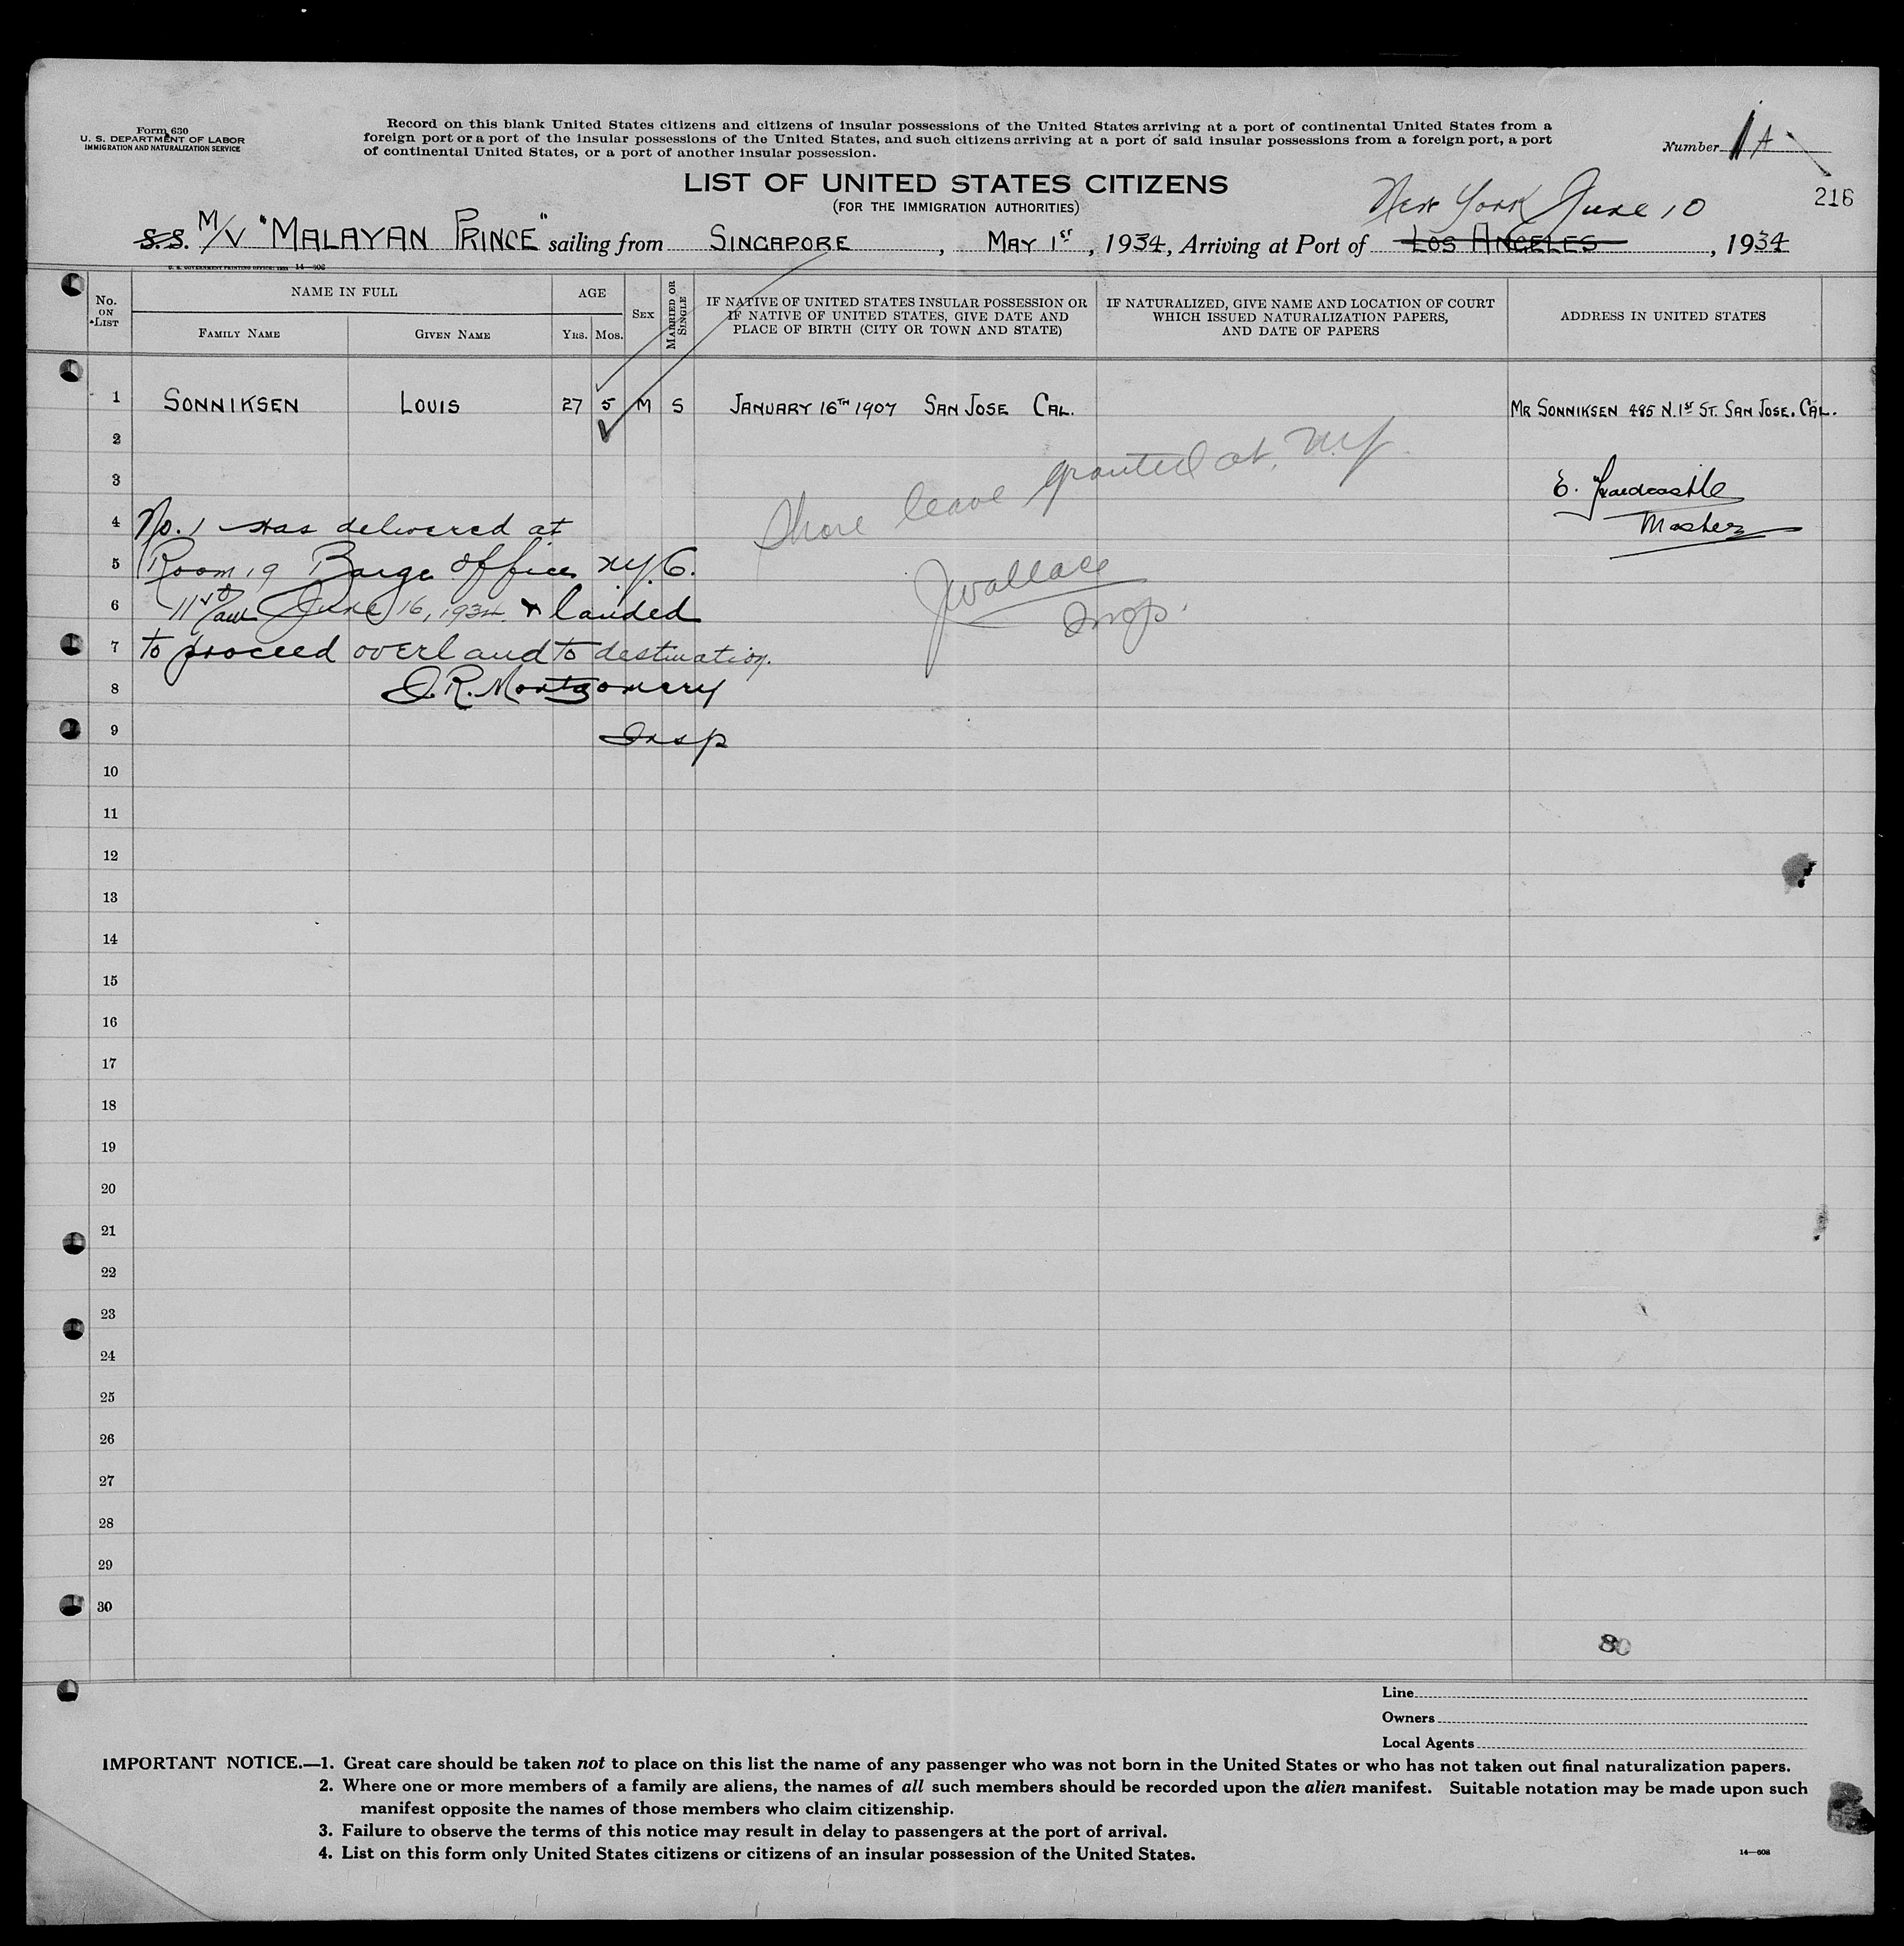 Form 630
U. S. DEPARTMENT OF LABOR
IMMIGRATION AND NATURALIZATION SERVICE
Record on this blank United States citizens and citizens of insular possessions of the United States arriving at a port of continental United States from a
foreign port or a port of the insular possessions of the United States, and such citizens arriving at a port of said insular possessions from a foreign port, a port
of continental United States, or a port of another insular possession.
Number 1 A
216
LIST OF UNITED STATES CITIZENS
(FOR THE IMMIGRATION AUTHORITIES)
New York June 10
S.S. M/V "MALAYAN PRINCE" sailing from SINGAPORE, MAY 1ST, 1934, Arriving at Port of LOS ANGELES, 1934
U. S. GOVERNMENT PRINTING OFFICE: 14—608
No. ON LIST
NAME IN FULL
FAMILY NAME
GIVEN NAME
AGE
YRS. MOS.
SEX
MARRIED OR SINGLE
IF NATIVE OF UNITED STATES INSULAR POSSESSION OR
IF NATIVE OF UNITED STATES, GIVE DATE AND
PLACE OF BIRTH (CITY OR TOWN AND STATE)
IF NATURALIZED, GIVE NAME AND LOCATION OF COURT
WHICH ISSUED NATURALIZATION PAPERS,
AND DATE OF PAPERS
ADDRESS IN UNITED STATES
1 SONNIKSEN LOUIS 27 5 M S JANUARY 16TH 1907 SAN JOSE CAL. MR SONNIKSEN 485 N. 1ST ST. SAN JOSE. CAL.
2
Shore leave granted at N.Y.
3 E. Hardcastle
4 No. 1 was delivered at
Master
5 Room 19 Barge Office N.Y.C.
J Wallace
6 June 16, 1934 & landed
Insp.
7 to proceed overland to destination.
8 J. R. Montgomery
9 Insp
10
11
12
13
14
15
16
17
18
19
20
21
22
23
24
25
26
27
28
29
30
80
Line
Owners
Local Agents
IMPORTANT NOTICE.—1. Great care should be taken not to place on this list the name of any passenger who was not born in the United States or who has not taken out final naturalization papers.
2. Where one or more members of a family are aliens, the names of all such members should be recorded upon the alien manifest. Suitable notation may be made upon such
manifest opposite the names of those members who claim citizenship.
3. Failure to observe the terms of this notice may result in delay to passengers at the port of arrival.
4. List on this form only United States citizens or citizens of an insular possession of the United States.
14—608